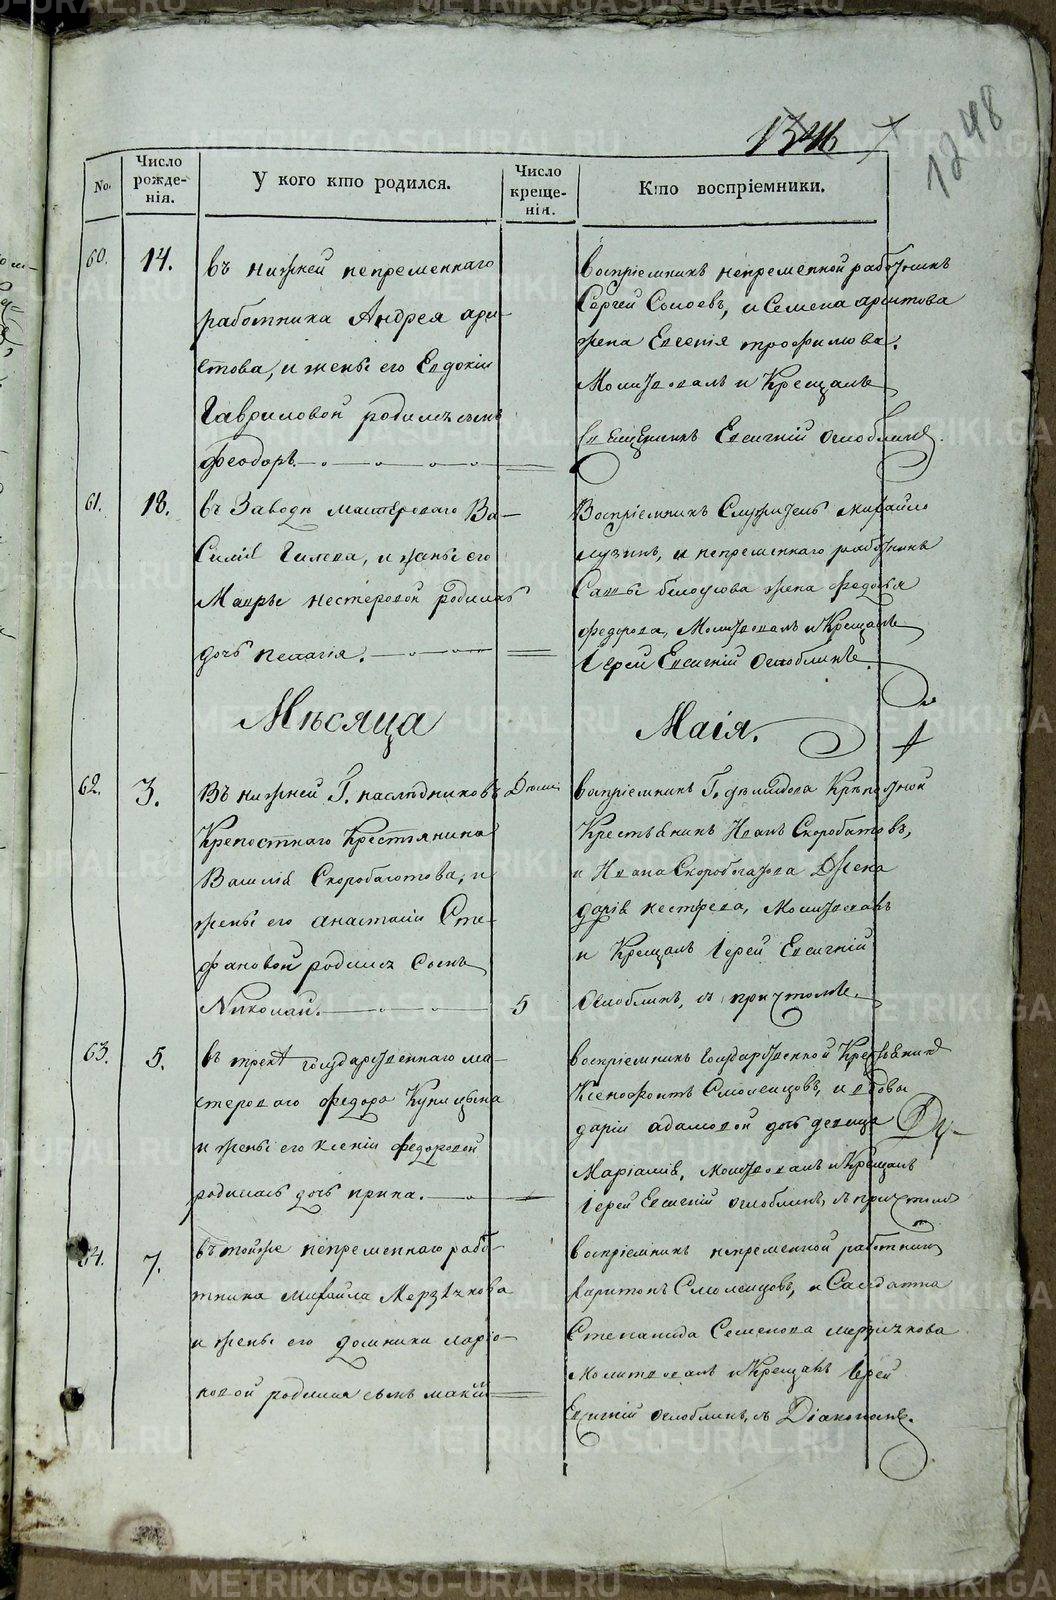 1346
1248
No.
Число рожде-
нія.
У кого кто родился.
Число креще-
нія.
Кто воспріемники.
60.
14.
въ нижней непременнаго
работника Андрея ари-
стова, и жены его Евдокіи
Гавриловой родилъ сынъ
Феодоръ.
воспріемникъ непременной работникъ
Сергей и Семена аристова
жена Евгенія трофимова.
Молитвовалъ и Крещалъ
Священникъ Евгеній Оглоблинъ.
61.
18.
въ Заводе мастероваго Ва-
Силія Гилева, и жены его
Мавры Нестеровой родилась
дочь пелагія.
Воспріемникъ Служитель михайло
лузинъ, и непременнаго работника
Саввы белоусова жена федосья
федорова, Молитвовалъ и Крещалъ
Іерей Евгеній Оглоблинъ.
Мѣсяца
Маія.
62.
3.
Въ нижней Г. наслѣдниковъ Деми
Крепостнаго Крестьянина
Василія Скоробогатова, и
жены его анастасіи Сте-
фановой родился Сынъ
Николай.
5
воспріемникъ Г. демидова Крѣпостной
Крестьянинъ Иванъ Скоробогатовъ,
и Ивана Скоробогатова Жена
дарія нестерева, Молитвовалъ
и Крещалъ Іерей Евгеній
Оглоблинъ, съ причтомъ.
63.
5.
въ государственнаго ма-
стероваго федора Купицына
и жены его ксеніи федоровой
родилась дочь ирина.
воспріемникъ Государственной Крестьянинъ
Ксенофонтъ Смоленцовъ, и вдовы
даріи адамовой дочь девица
Маріамія, молитвовалъ и Крещалъ
Іерей Евгеній Оглоблинъ, съ причтомъ
64.
7.
въ тойже непременнаго рабо-
тника михаила Мерзлякова
и жены его домники ларіо-
новой родился сынъ
воспріемникъ непременной работникъ
харитонъ Смоленцовъ, и Салдатка
Степанида Семенова мерзлякова
Молитвовалъ и Крещалъ Іерей
Евгеній Оглоблинъ, съ Діакономъ.
METRIKI.GASO-URAL.RU